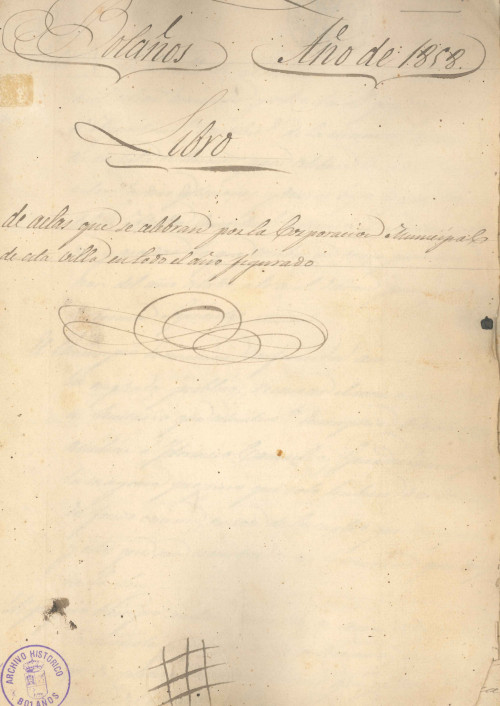 Bolaños Año de 1.858.
Libro
de actas que se celebran por la Corporacion Municipal
de esta villa en todo el año figurado
ARCHIVO HISTORICO
BOLAÑOS